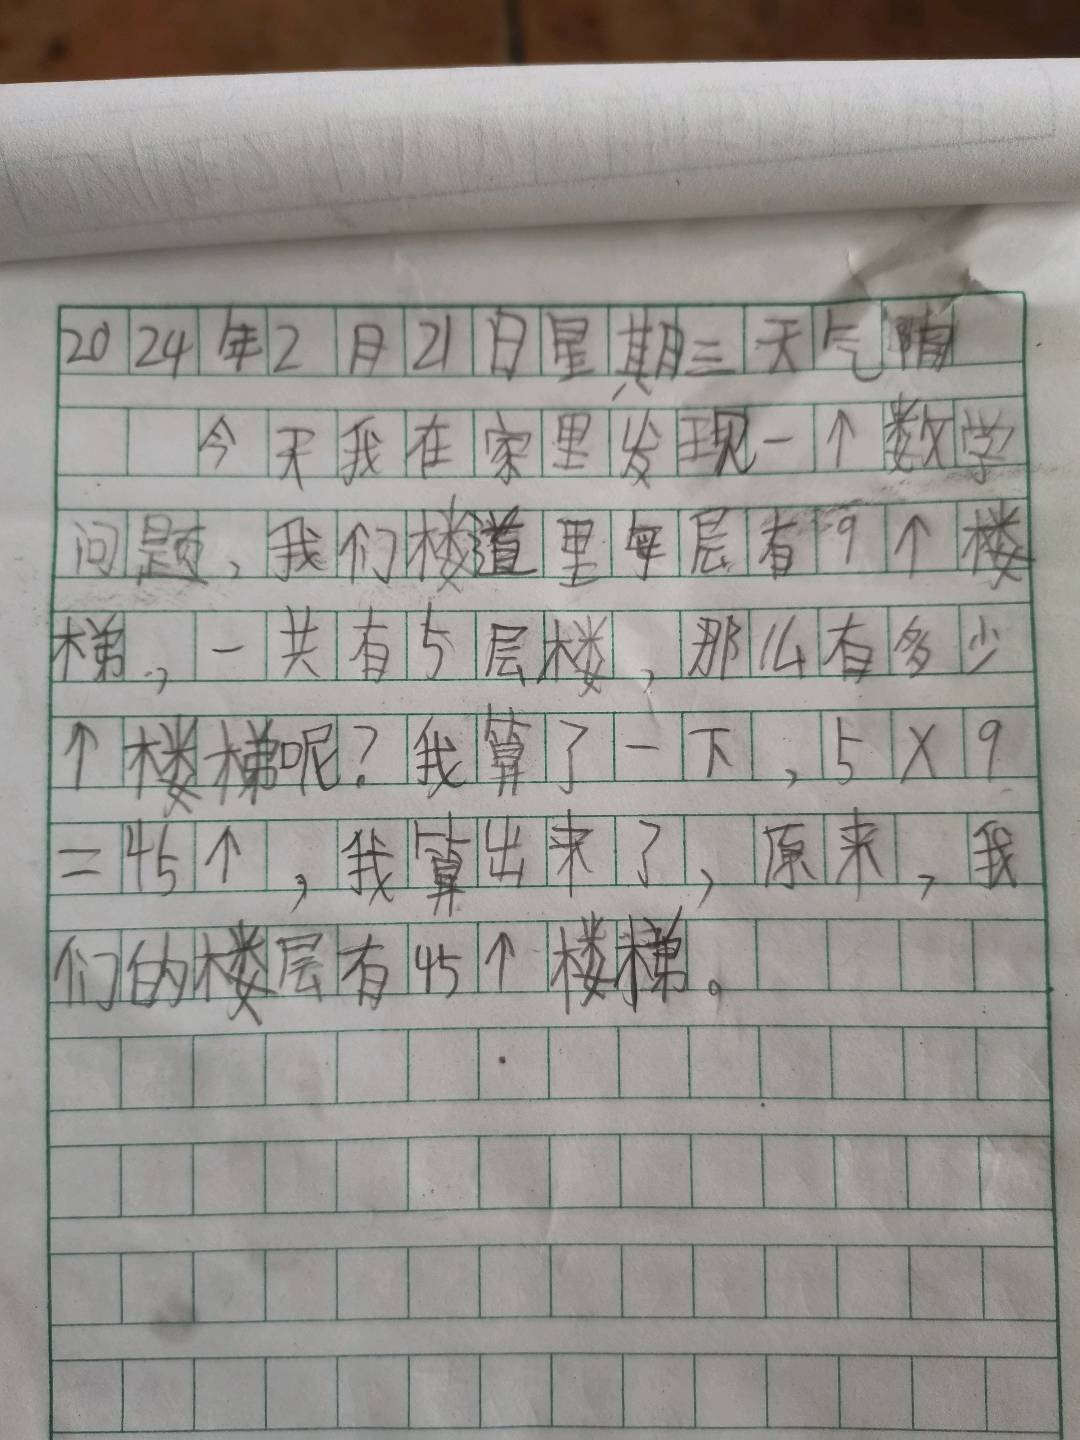 2024年2月21日星期三天气晴
今天我在家里发现一个数学
问题,我们楼道里每层有9个楼
梯,一共有5层楼,那么有多少
个楼梯呢?我算了一下,5X9
=45个,我算出来了,原来,我
们的楼层有45个楼梯。